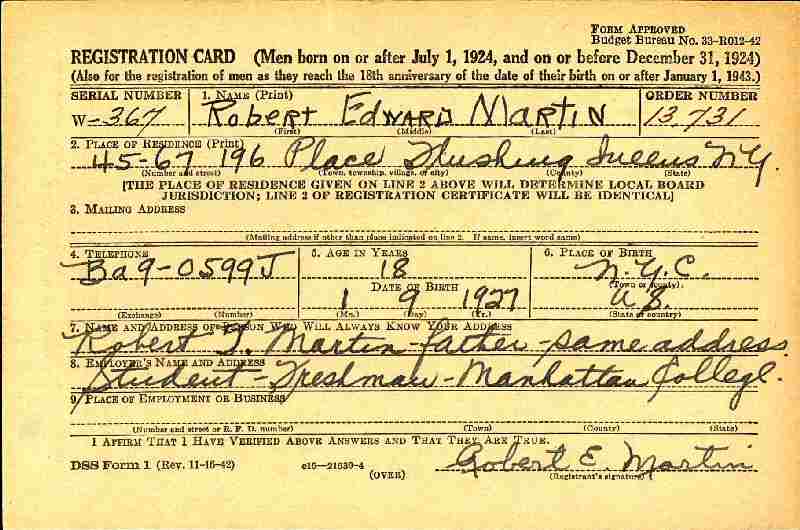 FORM APPROVED
BUDGET BUREAU NO. 33-R012-42
REGISTRATION CARD (Men born on or after July 1, 1924, and on or before December 31, 1924)
(Also for the registration of men as they reach the 18th anniversary of the date of their birth on or after January 1, 1943.)
SERIAL NUMBER 1. NAME (Print) ORDER NUMBER
W-367 ROBERT EDWARD MARTIN 13,731
(First) (Middle) (Last)
2. PLACE OF RESIDENCE (Print)
45-67 196 Place Flushing Queens N.Y.
(Number and street) (Town, township, village, or city) (County) (State)
[THE PLACE OF RESIDENCE GIVEN ON LINE 2 ABOVE WILL DETERMINE LOCAL BOARD
JURISDICTION; LINE 2 OF REGISTRATION CERTIFICATE WILL BE IDENTICAL]
3. MAILING ADDRESS
(Mailing address if other than place indicated on line 2. If same, insert word same)
4. TELEPHONE 5. AGE IN YEARS 6. PLACE OF BIRTH
Ba 9-0599J 18 N.Y.C.
DATE OF BIRTH (Town or county)
1 9 1927 U.S.
(Exchange) (Number) (Mo.) (Day) (Yr.) (State or country)
7. NAME AND ADDRESS OF PERSON WHO WILL ALWAYS KNOW YOUR ADDRESS
Robert F. Martin-father-same address
8. EMPLOYER'S NAME AND ADDRESS
Student-Freshman-Manhattan College.
9. PLACE OF EMPLOYMENT OR BUSINESS
(Number and street or R. F. D. number) (Town) (County) (State)
I AFFIRM THAT I HAVE VERIFIED ABOVE ANSWERS AND THAT THEY ARE TRUE.
DSS Form 1 (Rev. 11-16-42) c16-21630-4 Robert E. Martin
(OVER) (Registrant's signature)